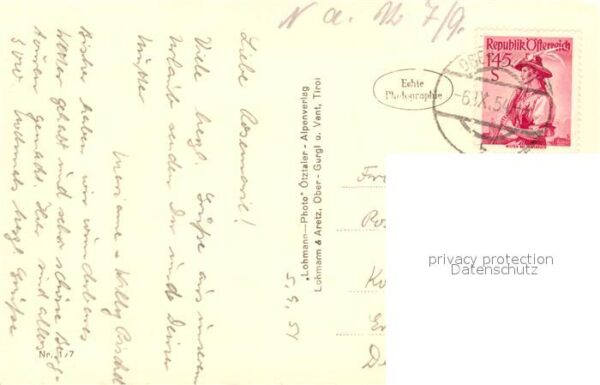 N a. M 7/9.
Liebe Rosemarie!
Viele herzl. Grüße aus unserem
Urlaub senden Dir und Deiner
Mutter
Marianne + Willy
Bisher haben wir wunderbares
Wetter gehabt und sehr schöne Berg-
touren gemacht. Hier sind alles
herzl. Grüße
5.9.54
Nr.
"Lohmann—Photo" Ötztaler - Alpenverlag
Lohmann & Aretz, Ober - Gurgl u. Vent, Tirol
Echte
Photographie
Republik Österreich
1'45
S
-6.IX.54
privacy protection
Datenschutz